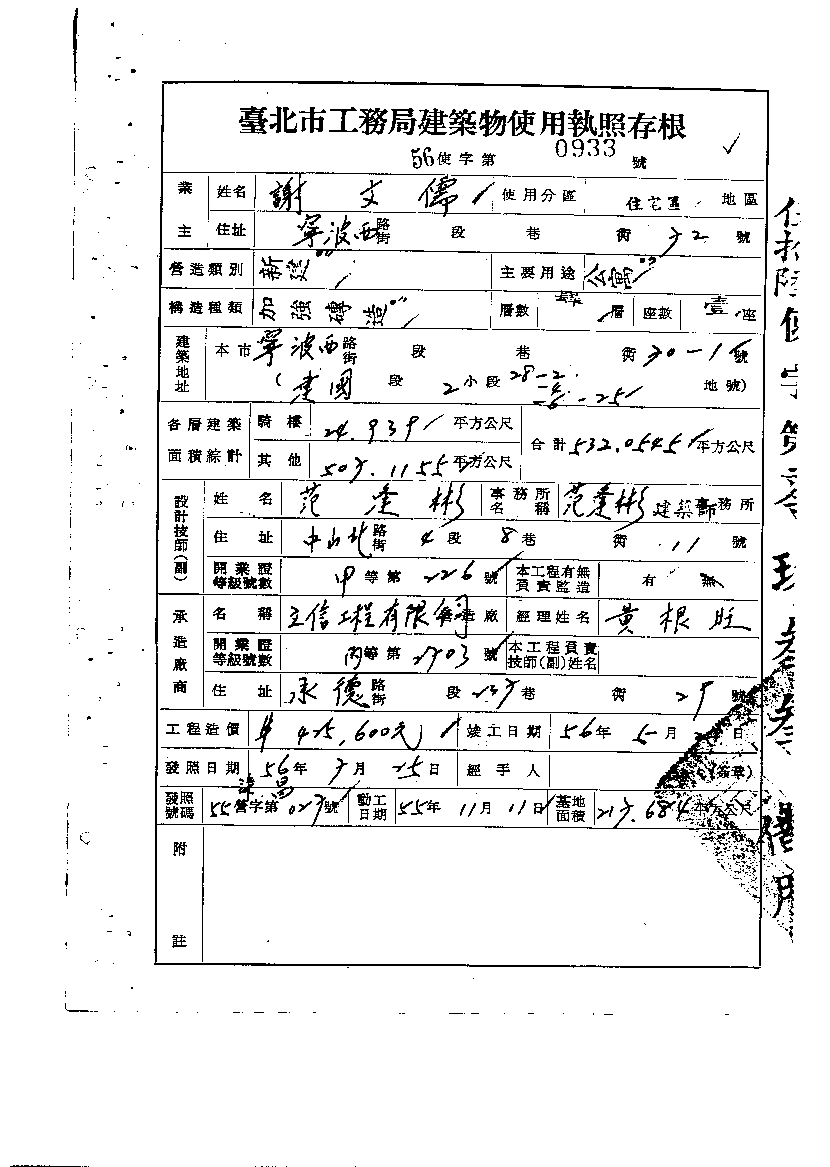 臺北市工務局建築物使用執照存根
56使字第 0933 號
業主 姓名 謝文儒 使用分區 住宅區 地區
住址 寧波西 路街 段 巷 街 32 號
營造類別 新建 主要用途 公寓
構造種類 加強磚造 層數 層 座數 壹 座
建築地址 本市 寧波西 路街 段 巷 街 30-1 號
(建國 段 2 小段 28-2 -4 -6 -25 地號)
各層建築面積綜計 騎樓 24.939 平方公尺 合計 532.0545 平方公尺
其他 507.1155 平方公尺
設計技師(副) 姓名 范 彬 事務所名稱 范 彬 建築師事務所
住址 中山北 路街 4 段 8 巷 街 11 號
開業證等級號數 甲 等第 226 號 本工程有無負責監造 有 無
承造廠商 名稱 立信工程有限公司 營造廠 經理姓名 黃根旺
開業證等級號數 丙 等第 2703 號 本工程負責技師(副)姓名
住址 承德 路街 段 237 巷 街 號
工程造價 425,600元 竣工日期 56年 5月 日
發照日期 56年 7月 25日 經手人 (簽章)
發照號碼 55營字第 號 動工日期 55年 11月 11日 基地面積 217.684 平方公尺
附註